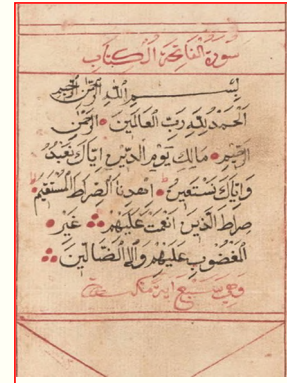 سورة الفاتحة الكتاب
بسم الله الرحمن الرحيم
الحمد لله رب العالمين الرحمن
الرحيم مالك يوم الدين إياك نعبد
وإياك نستعين اهدنا الصراط المستقيم
صراط الذين أنعمت عليهم غير
المغضوب عليهم ولا الضالين
وهي سبع آية